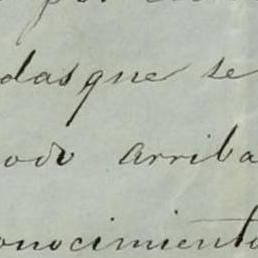 por
das que se
odo arriba
onocimiento